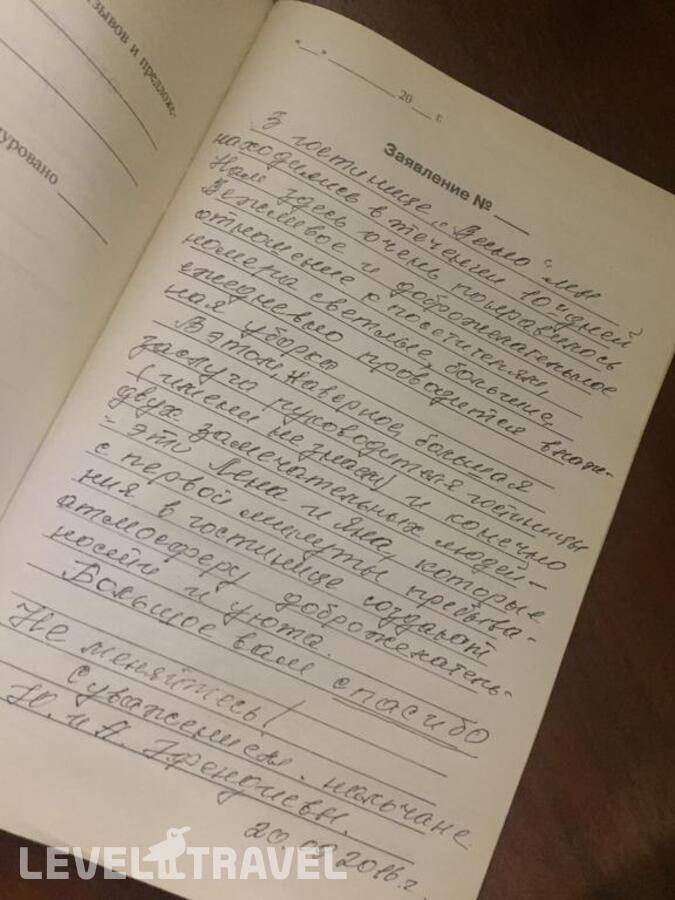 зывов и предложе-
уровано
"__" ________ 20 __ г.
Заявление № ___
В гостинице "Весна" мы
находились в течении 10и дней
Нам здесь очень понравилось
Вежливое и доброжелательное
отношение к посетителям,
номера светлые, большие,
ежедневно проводится влаж-
ная уборка
В этом, наверное, большая
заслуга руководителя гостиницы
(имени не знаю) и конечно
двух замечательных людей -
- это Лена и Яна, которые
с первой минуты пребыва-
ния в гостинице создают
атмосферу доброжелатель-
ности и уюта.
Большое вам спасибо
Не меняйтесь!
С уважением. нальчане.
Ю. и А.
20.09.2016 г.
LEVEL TRAVEL